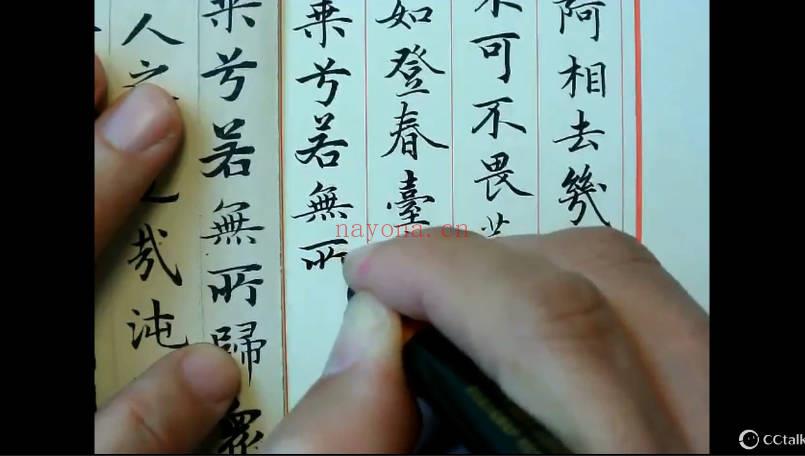 阿相去幾
不可不畏
如登春臺
乘兮若無所
乘兮若無所歸眾
人之
哉沌
nayona.cn
CCtalk